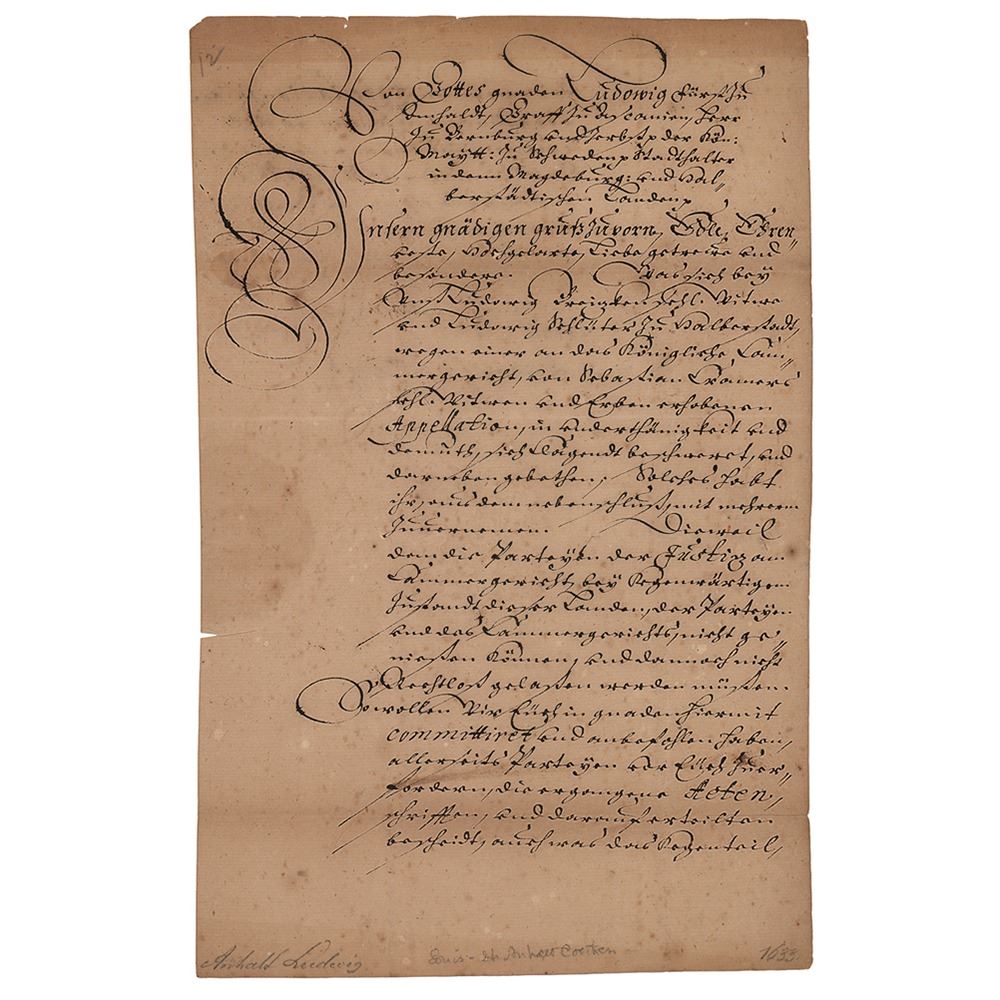 12
Von Gottes gnaden Ludowig Fürst zu
Annhaldt, Graff zu Ascanien, Herr
zu Bernburg und Zerbst, der Kön:
Maytt: zu Schweden, Stadthalter
in denn Magdeburg: und Hal„
berstädtischen Landen,
Unsern gnädigen gruß zuvorn, Edle, Ehren„
veste, Hochgelarte, Liebe getreuwe und
besondere. Was sich bey
Unß Ludowig Sehl. Witwe
und Ludowig Schlüter zu Halberstadt,
wegen einer an das Königliche Cam„
mergericht, von Sebastian Cramers
sehl. Witwen und Erben erhobenen
Appellation, in underthänigkeit und
demuth, sich klagendt beschweret, und
darneben gebethen, Solches habt
ihr, aus dem nebenschluß, mit mehrerm
zuvernemen. Dieweil
dem die Parteyen der Justiz am
Cammergericht, bey kegenwärtigem
Zustandt dieser Landen, der Parteyen
und des Cammergerichts, nicht ge„
niessen können, und dannoch nicht
Rechtloß gelassen werden müssen.
So wollen Wir Euch in gnaden hiermit
committiret und anbefohlen haben,
allerseits Parteyen vor Euch zuer„
fordern, die ergangene Acten,
schriften, und darauf erteilten
bescheidt, auch was das kegenteil,
Anhalt Ludwig
Louis - Anhalt Coethen
1633